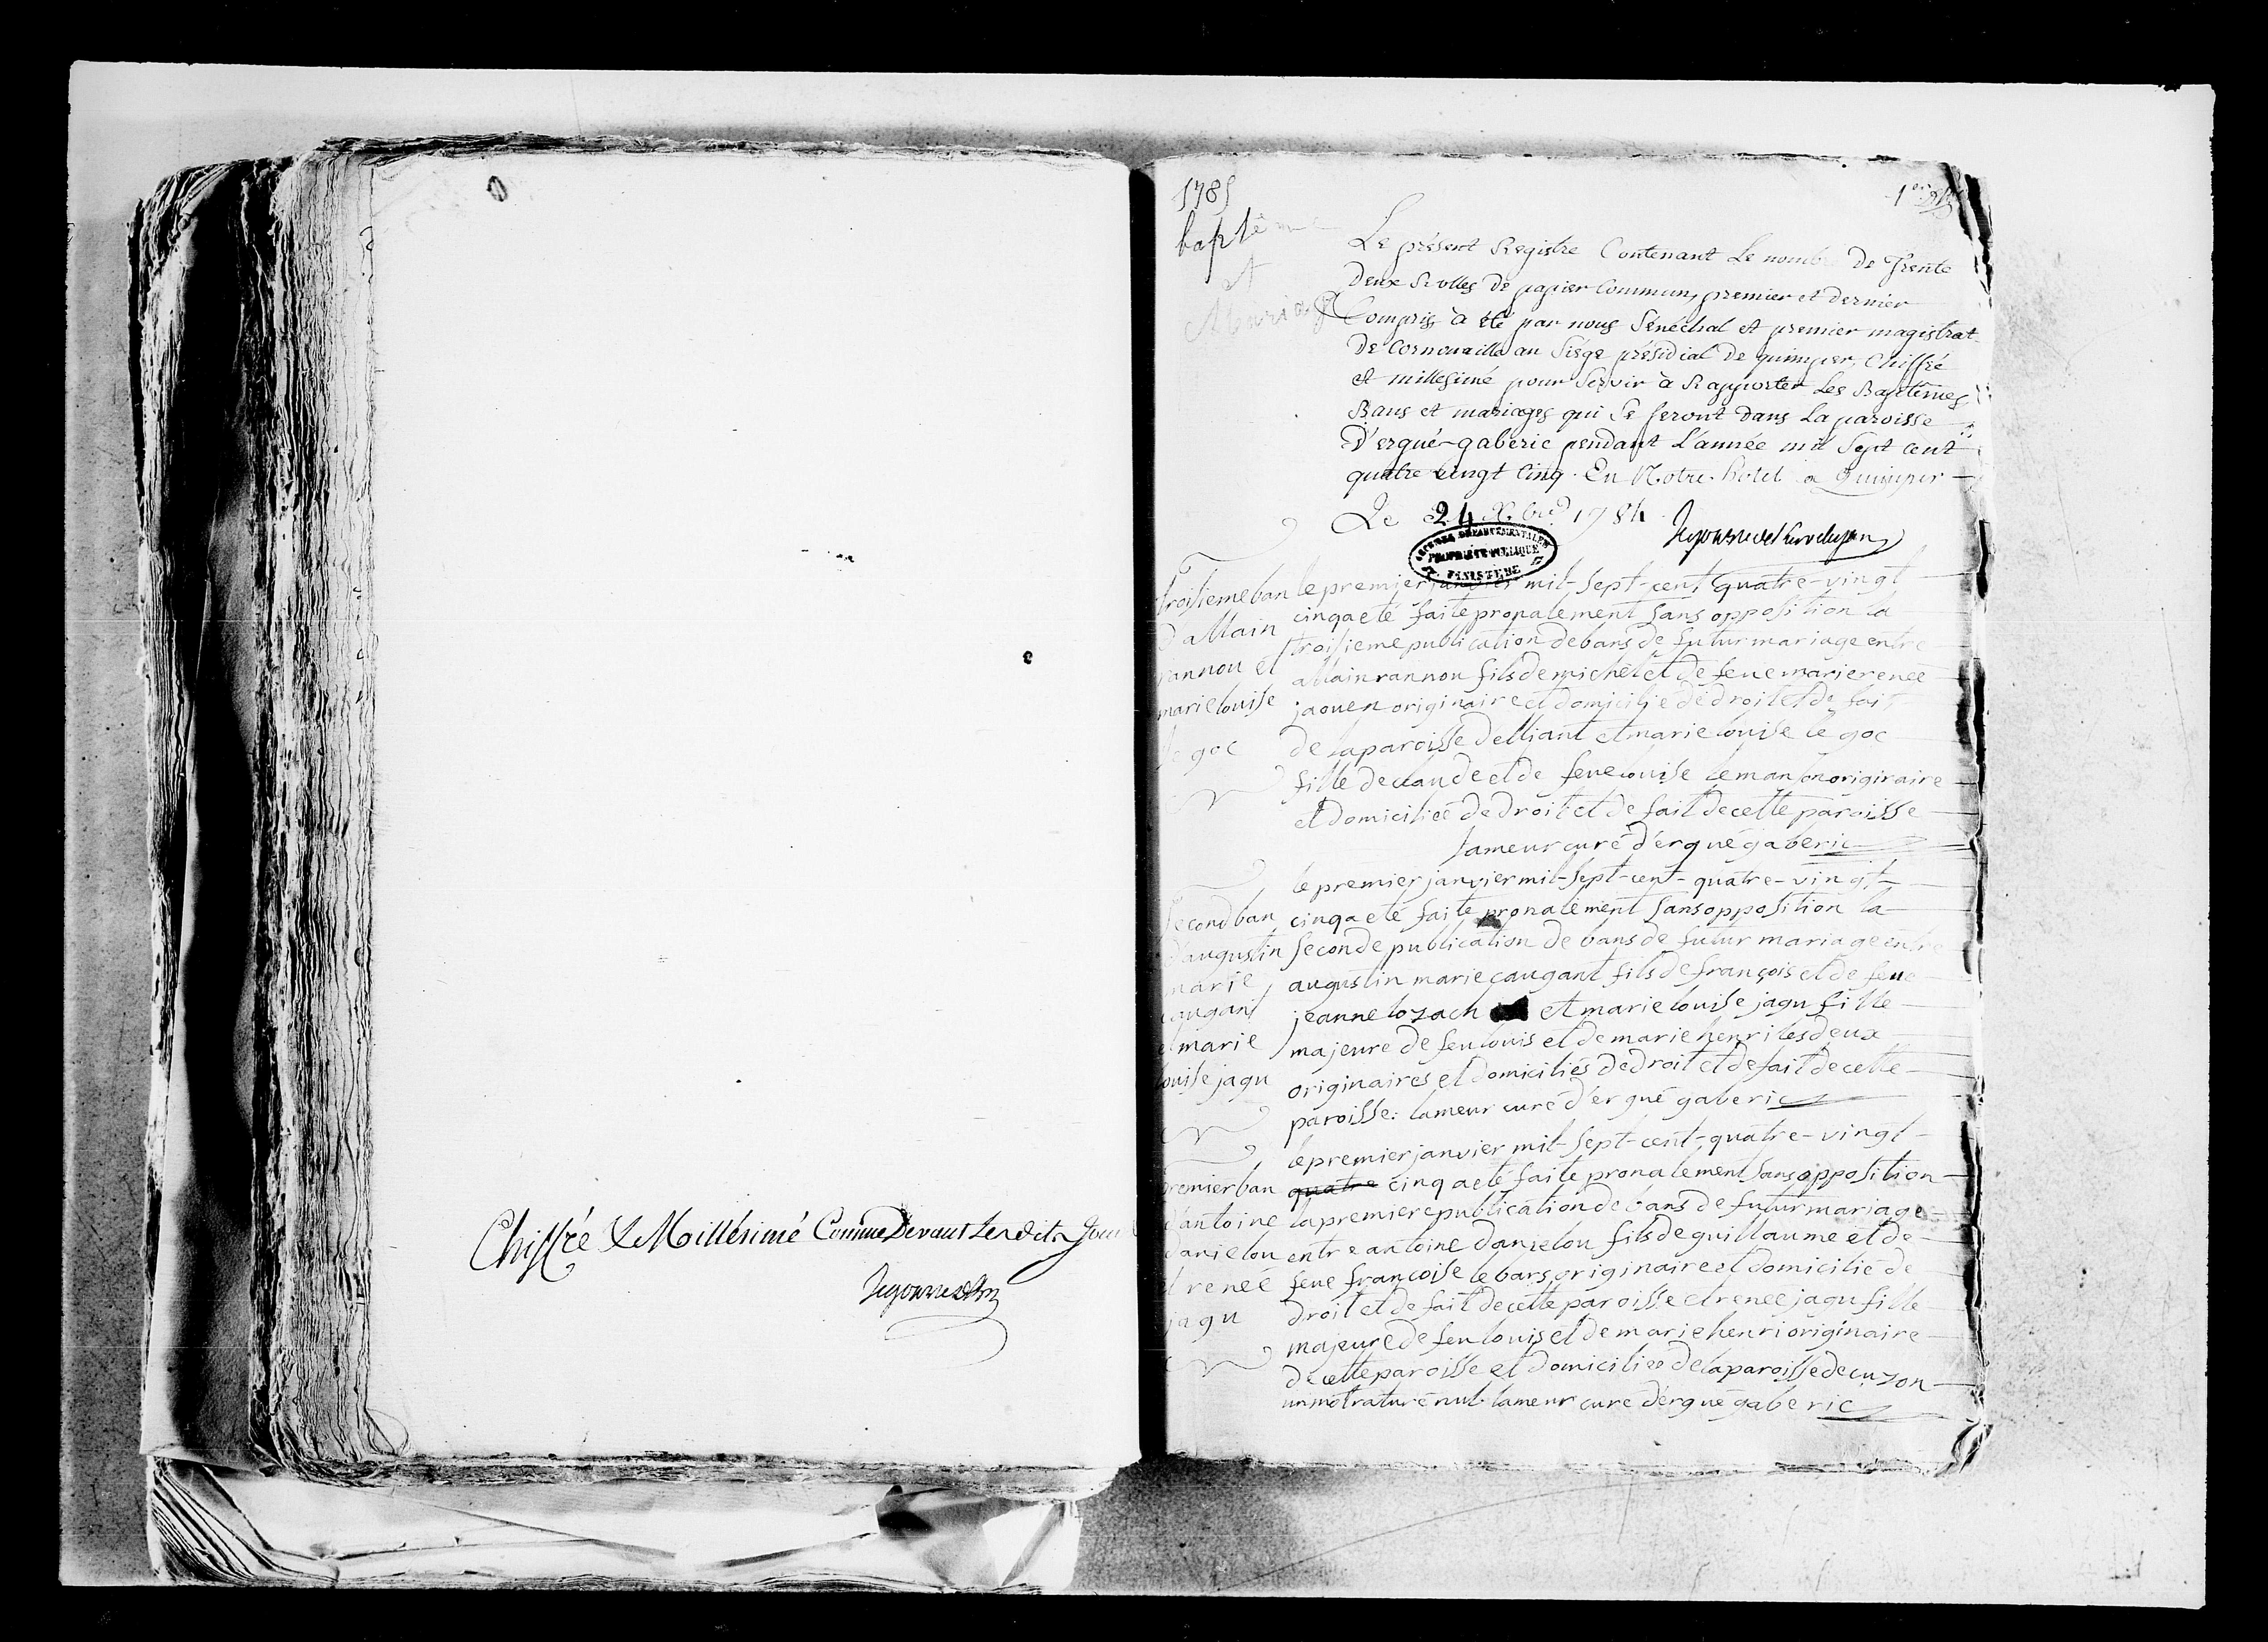 Chiffré & Millésimé Comme Devant Lesdits Jour
1785
baptême
et
Mariage
1er
Le présent Registre Contenant Le nombre De Trente
Deux Rolles De papier Commun, premier et dernier
Compris, à été par nous Sénéchal et premier magistrat
De Cornouaille au Siége présidial De quimper, Chiffré
et millesimé pour Servir à Rapporter Les Baptêmes
Bans et mariages qui Se feront Dans La paroisse
D'ergué-gaberic pendant L'année mil Sept cent
quatre vingt Cinq. En Notre hotel a Quimper
Le 24 Xbre 1784
ARCHIVES DÉPARTEMENTALES
PROPRIÉTÉ PUBLIQUE
FINISTÈRE
troisieme ban
d'allain
rannou et
marie louise
le goc
le premier janvier mil-sept-cent quatre-vingt
cinq a eté faite pronalement sans opposition la
troisieme publication de bans de futur mariage entre
allain rannou fils de michel et de feue marie renee
jaouen originaire et domicilié de droit et de fait
de la paroisse d'elliant et marie louise le goc
fille de claude et de feue louise le manson originaire
et domiciliée de droit et de fait de cette paroisse
lameur curé d'ergué gaberic
second ban
d'augustin
marie
caugant
et marie
louise jagu
le premier janvier mil-sept-cent-quatre-vingt-
cinq a eté faite pronalement sans opposition la
seconde publication de bans de futur mariage entre
augustin marie caugant fils de françois et de feue
jeanne lozach et marie louise jagu fille
majeure de feu louis et de marie henri les deux
originaires et domiciliés de droit et de fait de cette
paroisse: lameur curé d'ergué gaberic
premier ban
d'antoine
danielou
et renée
jagu
le premier janvier mil-sept-cent-quatre-vingt-
quatre cinq a eté faite pronalement sans opposition
la premiere publication de bans de futur mariage
entre antoine danielou fils de guillaume et de
feue françoise le bars originaire et domicilié de
droit et de fait de cette paroisse et renée jagu fille
majeure de feu louis et de marie henri originaire
de cette paroisse et domiciliée de la paroisse de cuzon
un mot raturé nul. lameur curé d'ergué gaberic